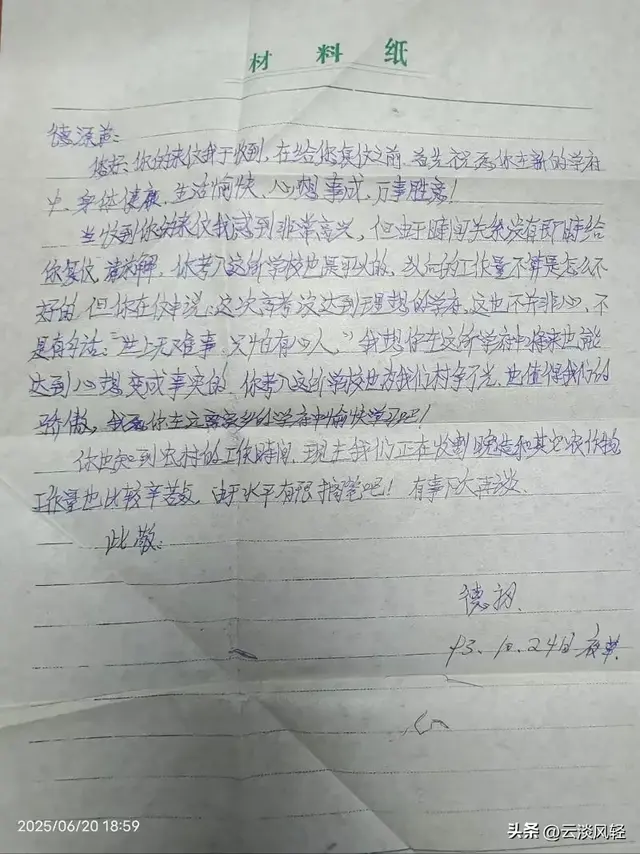 材料纸
德源弟:
您好！你的来信我于收到,在给你复信之前,首先祝愿你在新的学府
中,身体健康,生活愉快,心想事成,万事胜意!
当收到你的来信我感到非常高兴,但由于时间关系没有即时给
你复信,请谅解,你考入这所学校也是可以的,以向的工作量不算是怎么不
好的,但你在信中说:这次高考没达到理想的学府,这也不并非心,不
是有句话:"世上无难事,只怕有心人,"我想你在这所学府中将来也能
达到心想变成事实的,你考入这所学校也为我们村争了光,也值得我们的
骄傲,我愿你在这个学府中愉快学习吧!
你也知到农村的工作时间,现在我们正在收割晚造和其它农作物
工作量也比较辛苦点,由于水平有限搁笔吧!有事下次再谈.
此敬:
德初.
93.10.24日夜草.
2025/06/20 18:59
头条 @云淡风轻